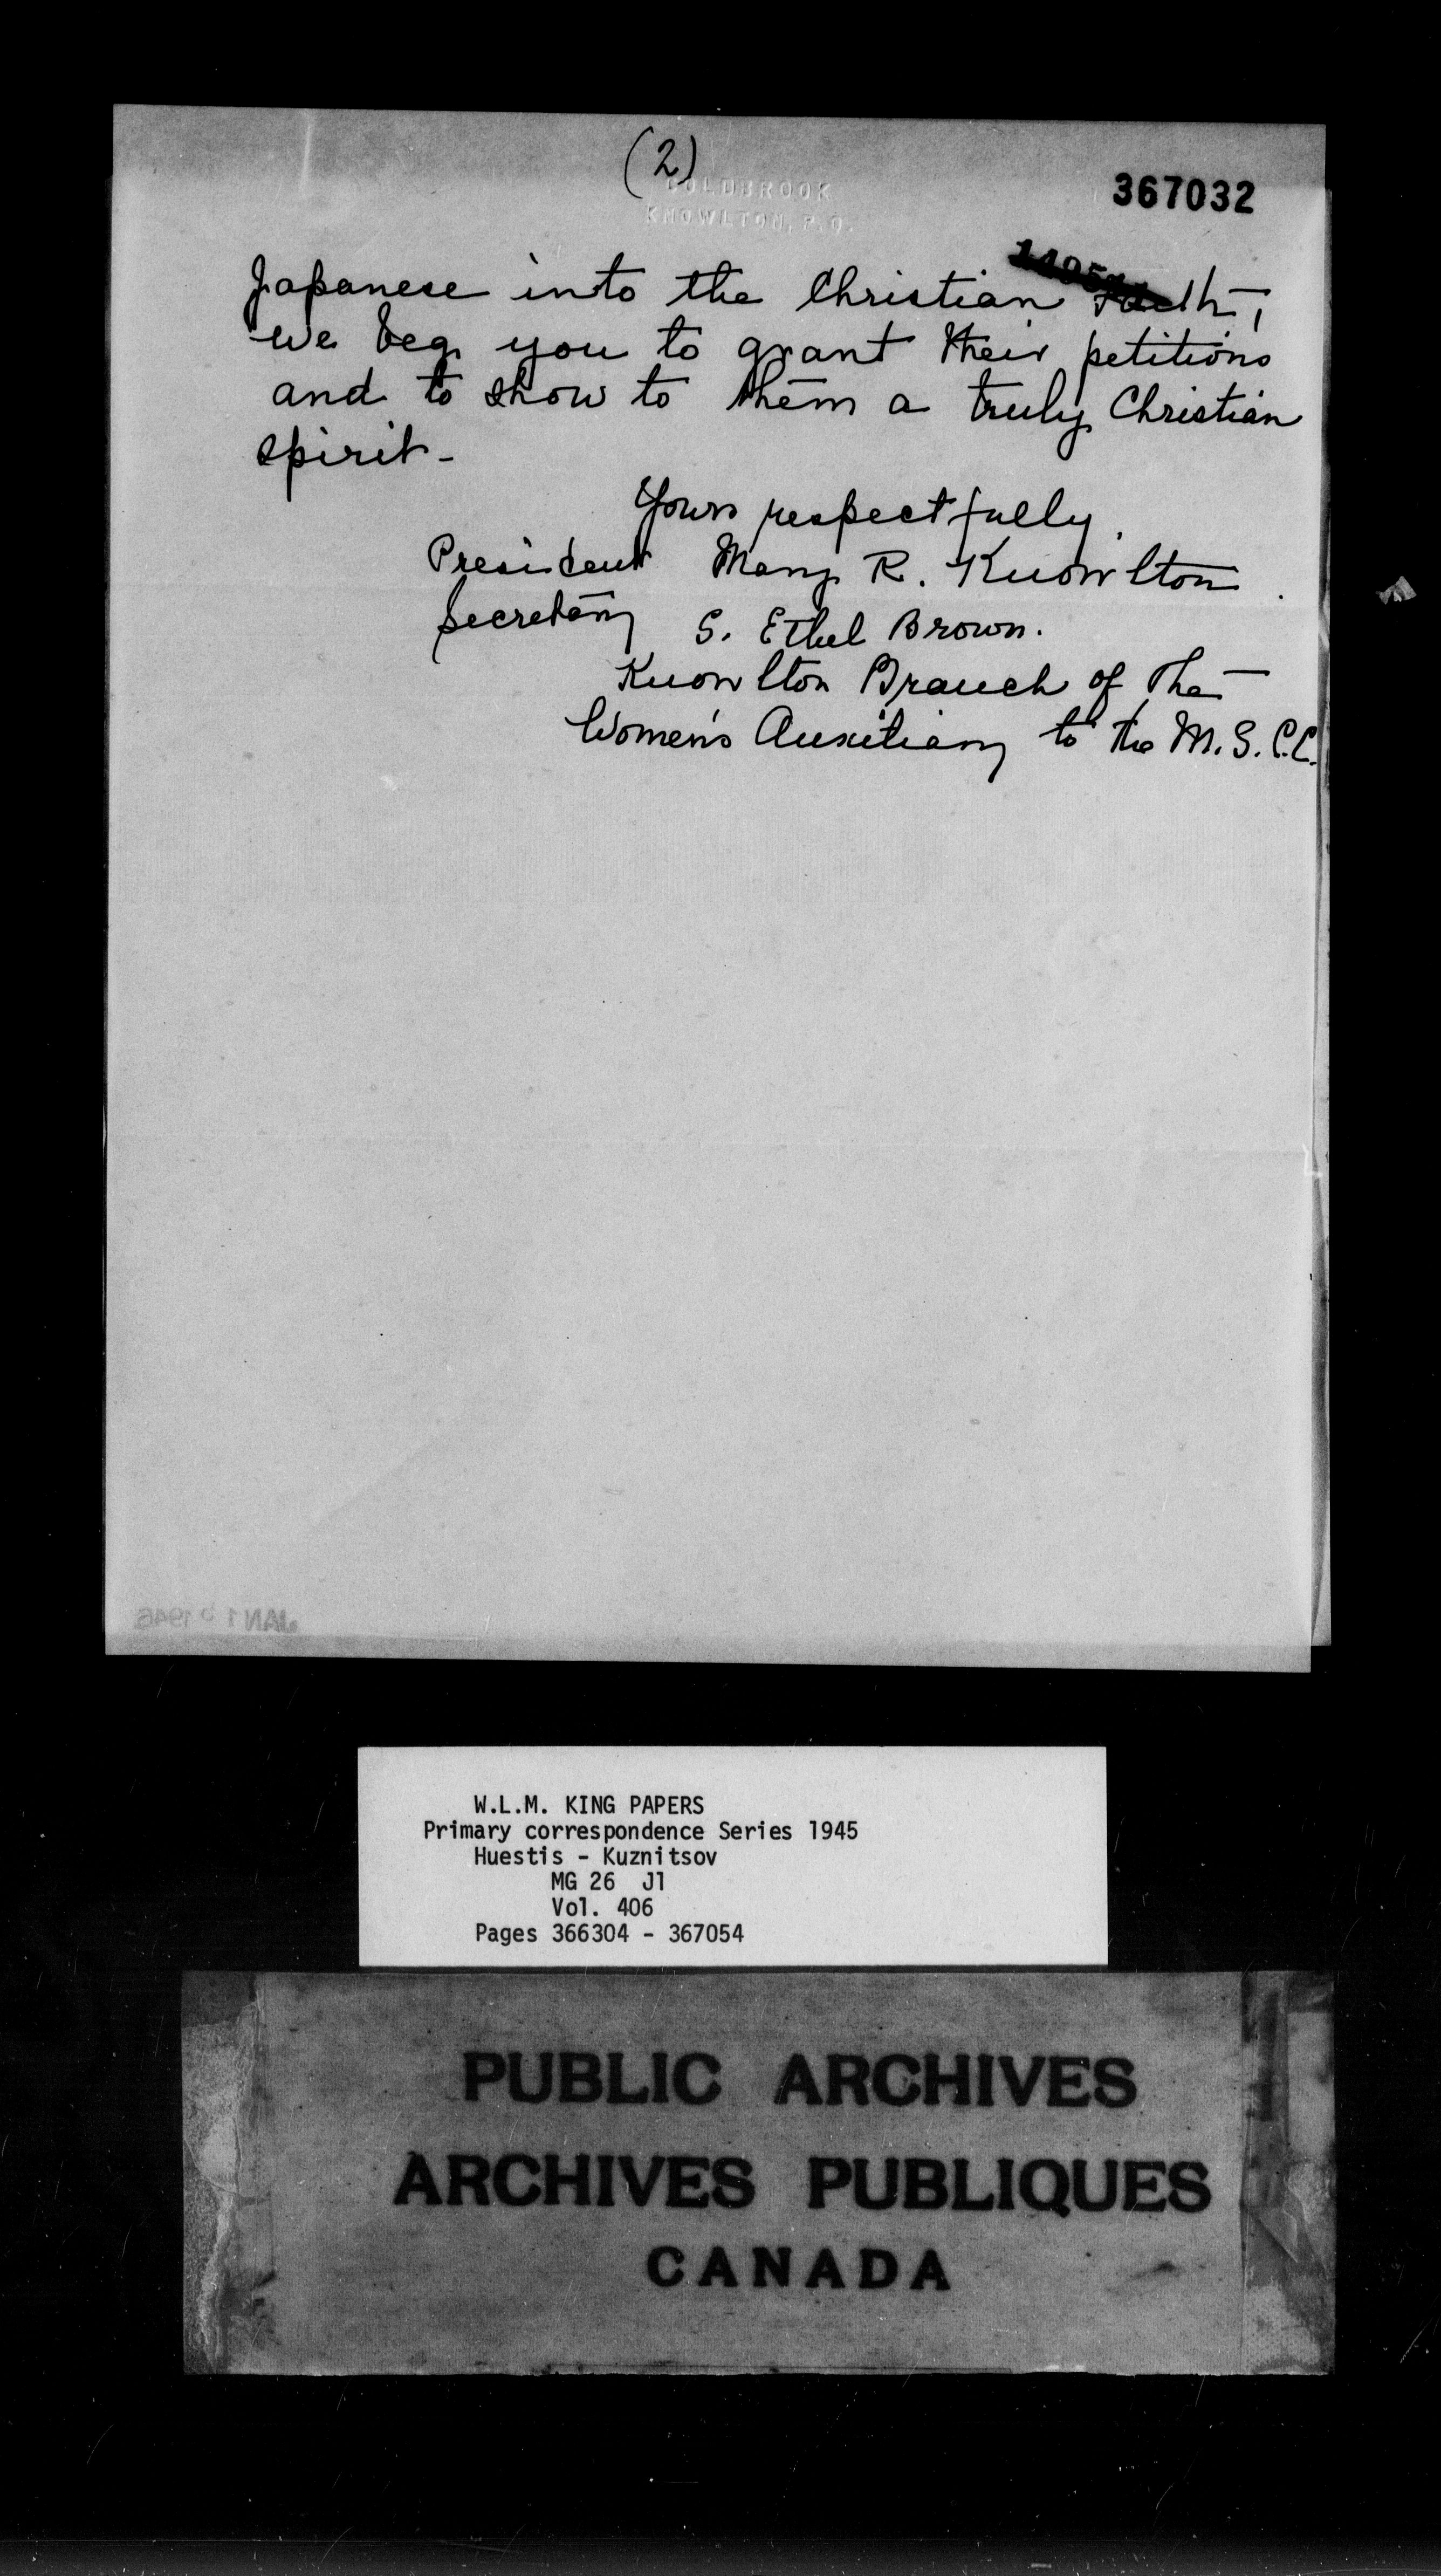 (2)
COLDBROOK
KNOWLTON, P.Q.
367032
Japanese into the Christian faith,
we beg you to grant their petitions
and to show to them a truly Christian
spirit-
Yours respectfully,
President Mary R. Knowlton.
Secretary S. Ethel Brown.
Knowlton Branch of The
Women's Auxiliary to the M.S.C.C.
W.L.M. KING PAPERS
Primary correspondence Series 1945
Huestis - Kuznitsov
MG 26 J1
Vol. 406
Pages 366304 - 367054
PUBLIC ARCHIVES
ARCHIVES PUBLIQUES
CANADA